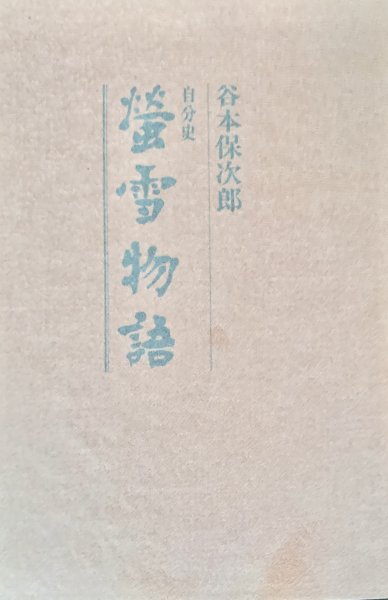 谷本保次郎
自分史
螢雪物語